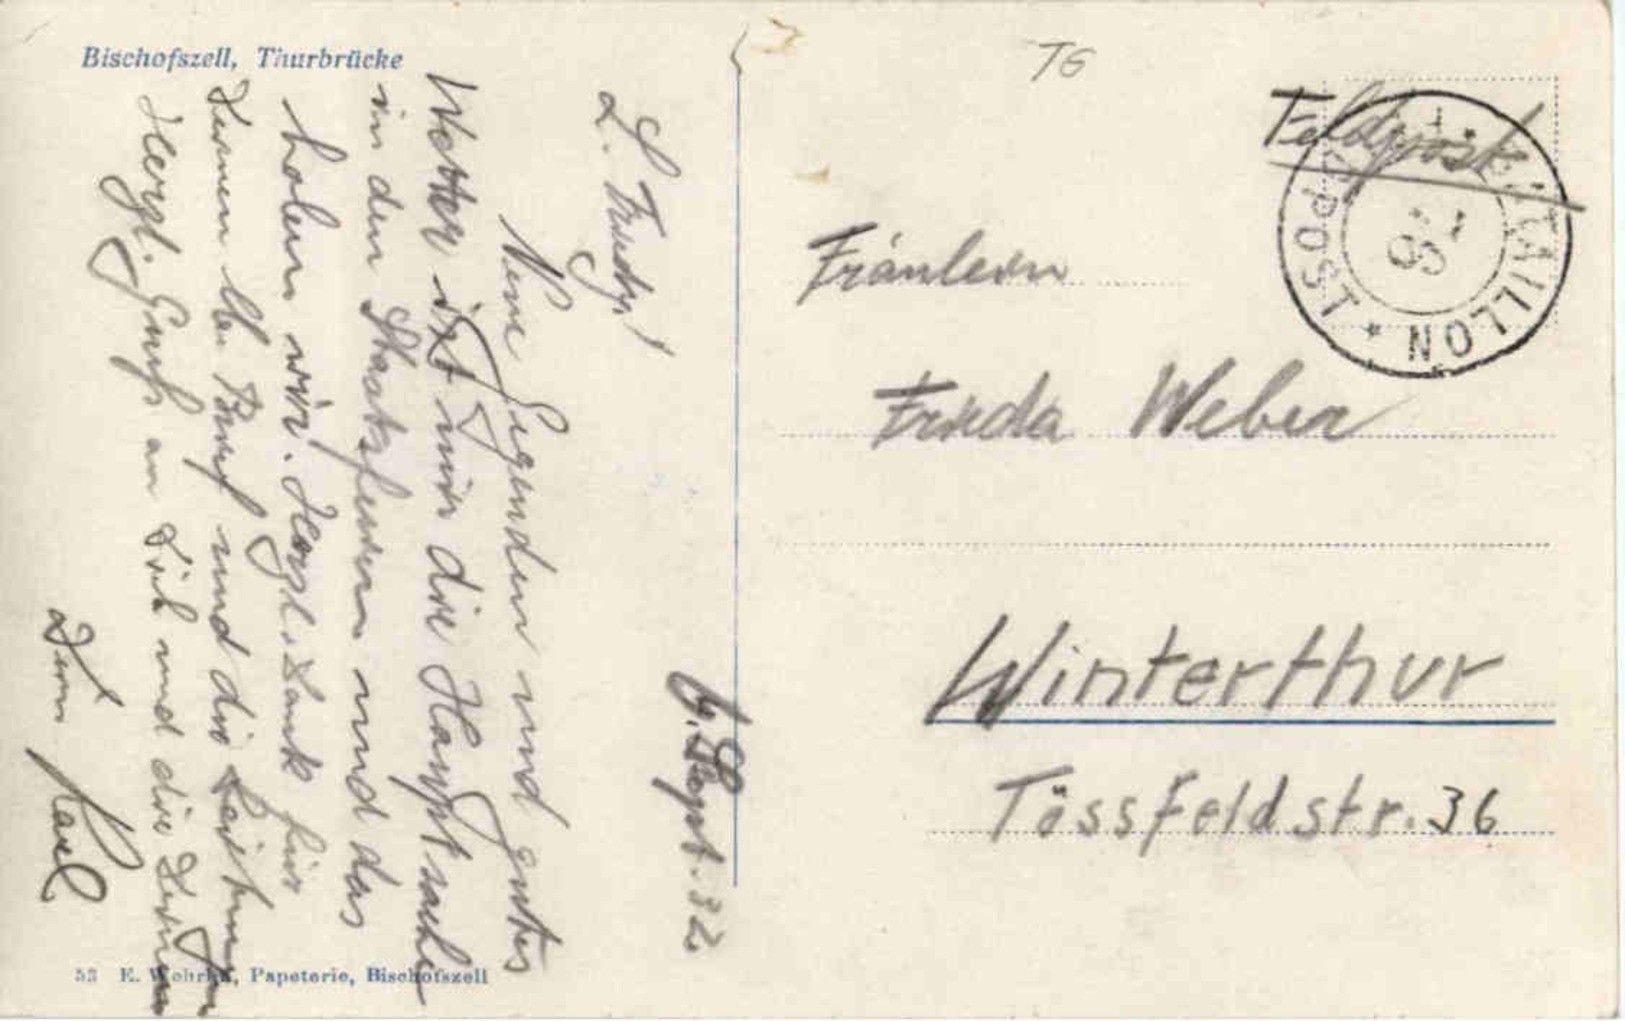 Bischofszell, Thurbrücke
TG
Feldpost
FELDPOST
BATAILLON
92
Fräulein
Frieda Weber
Winterthur
Tössfeldstr. 36
9. Sept. 32
L. Friedy!
Neue Gegenden und gutes
Wetter ist mir die Hauptsache
in den Staatsferien und das
holen wir. Herzl. Dank für
Deinen lb. Brief und die Zeitung.
Herzl. Gruss an Dich und die Deinen
Dein Karl
53 E. Wehrli, Papeterie, Bischofszell